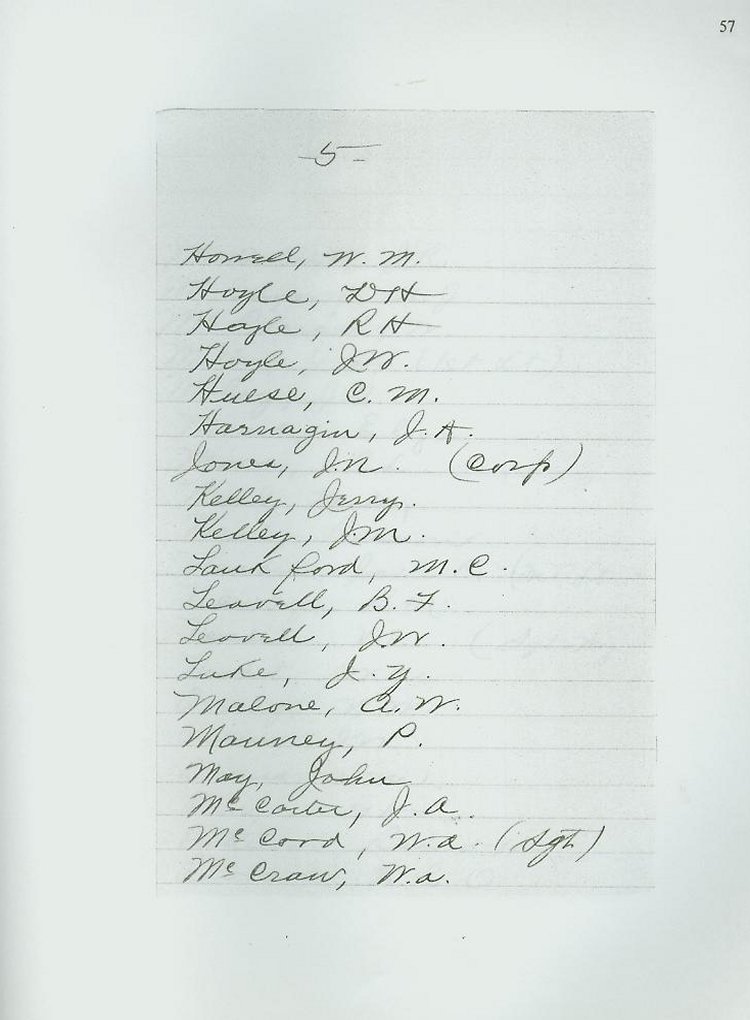 57
-5-
Howell, W. M.
Hoyle, D H
Hoyle, R H
Hoyle, J W.
Huese, C. M.
Harnagin, J. A.
Jones, J. N. (Corp)
Kelley, Jerry.
Kelley, J. M.
Lank ford, M. C.
Leavell, B. F.
Leavell, J. W.
Luke, J. Y.
Malone, A. W.
Mauney, P.
May, John
Mc Carter, J. A.
Mc Cord, W. A. (Sgt)
Mc Craw, W. A.